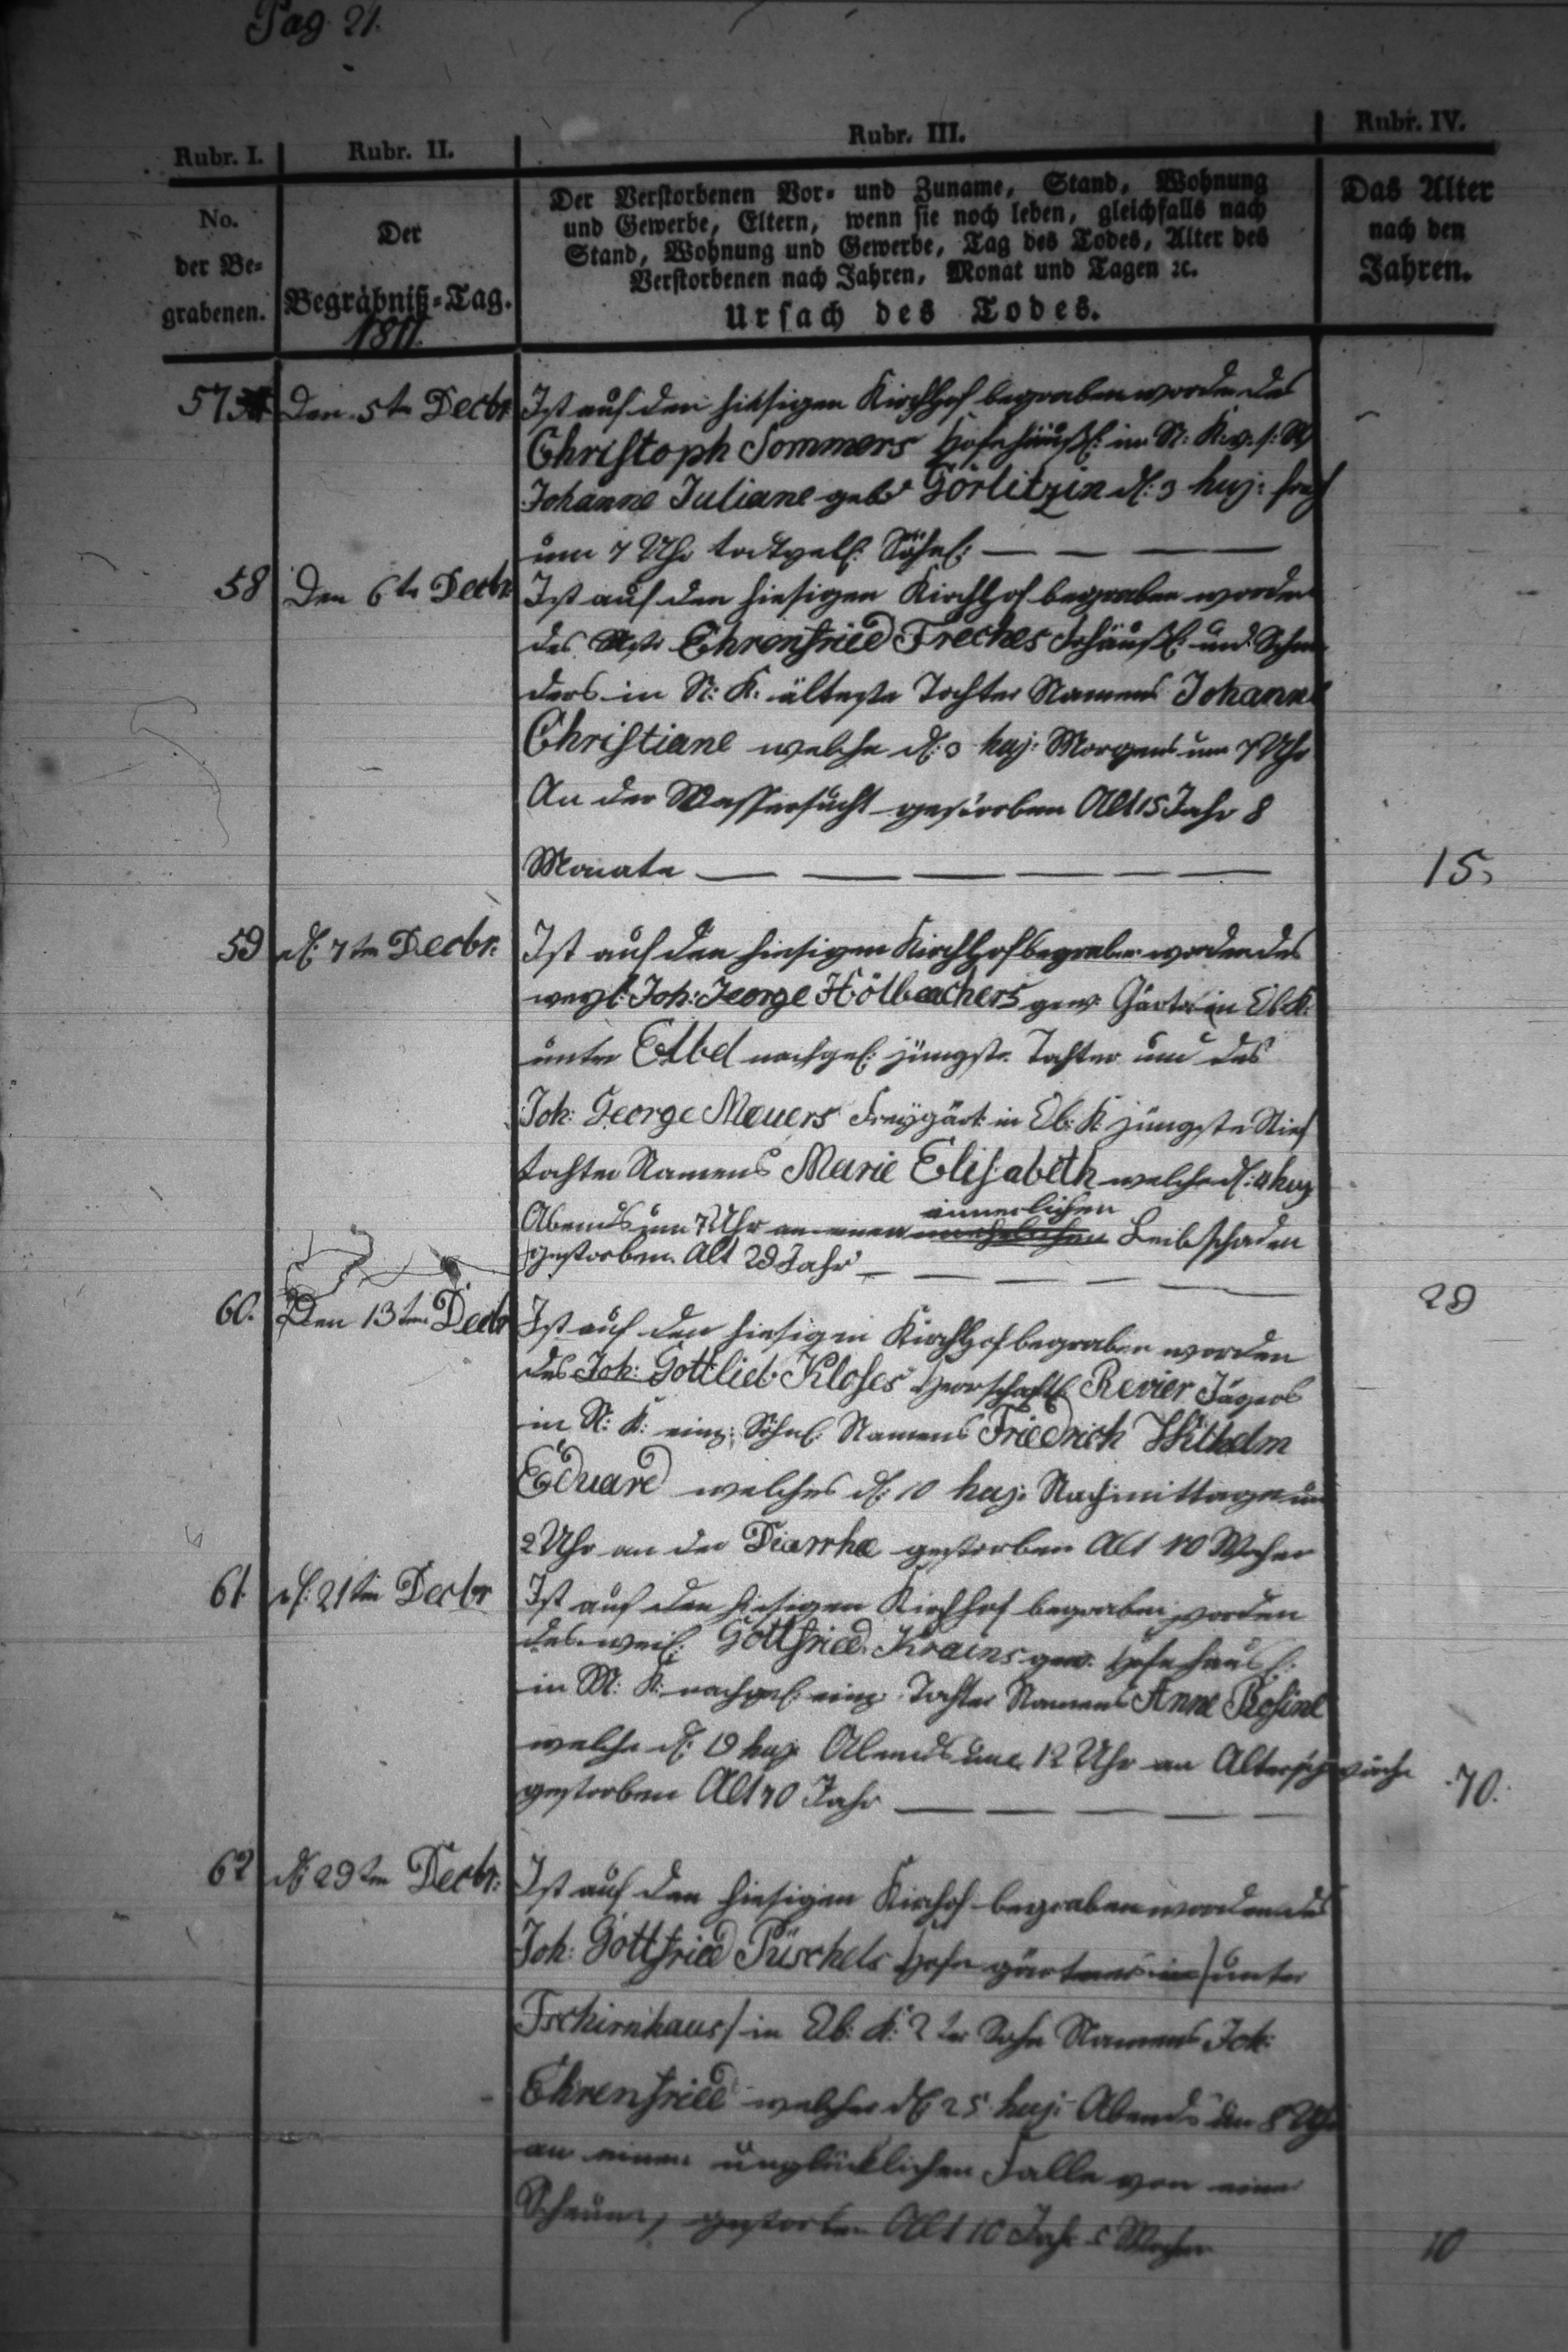 Pag. 21.
Rubr. I. Rubr. II. Rubr. III. Rubr. IV.
No.
der Be-
grabenen.
Der
Begräbniß-Tag.
1811.
Der Verstorbenen Vor- und Zuname, Stand, Wohnung
und Gewerbe, Eltern, wenn sie noch leben, gleichfalls nach
Stand, Wohnung und Gewerbe, Tag des Todes, Alter des
Verstorbenen nach Jahren, Monat und Tagen ꝛc.
Ursach des Todes.
Das Alter
nach den
Jahren.
57 Den 5ten Decbr Ist auf den hiesigen Kirchhof begraben worden des
Christoph Sommers Hofehäußl: in N: K. u. s: W
Johanne Juliane geb Görlitzin d: 3 huj: früh
um 7 Uhr todtgeb: Söhnl:
58 Den 6ten Decbr Ist auf den hiesigen Kirchhof begraben worden
des Ehrenfried Freches Frhäußl: und Schnei
ders in N: K: älteste Tochter Namens Johanne
Christiane welche d: 3 huj: Morgens um 7 Uhr
An der Wassersucht gestorben Alt 15 Jahr 8
Monate 15.
59 d: 7ten Decbr: Ist auf den hiesigen Kirchhof begraben worden des
weyl: Joh: George Hölbachers gew: Gärtn: in Ob: K:
unter Elbel nachgel: jüngste Tochter und des
Joh: George Meuers Freygärt: in Ob: K: jüngste Stief
tochter Namens Marie Elisabeth welche d: 4 huj
innerlichen
Abends um 7 Uhr an einen Leibschaden
gestorben. Alt 29 Jahr 29
60. Den 13ten Decbr Ist auf den hiesigen Kirchhof begraben worden
des Joh: Gottlieb Kloses Herrschaftl: Revier Jägers
in N: K: einz: Söhnl: Namens Friedrich Wilhelm
Eduard welches d: 10 huj: Nachmittage um
2 Uhr an der Diarrhœ gestorben Alt 10 Wochen
61. d: 21ten Decbr Ist auf den hiesigen Kirchhof begraben worden
des weil: Gottfried Krains gew. Hofehäusl:
in M: K: nachgel: einz: Tochter Namens Anne Rosine
welche d: 19 huj: Abends um 12 Uhr an Altersschwäche
gestorben Alt 70 Jahr 70.
62 d: 29ten Decbr: Ist auf den hiesigen Kirchof begraben worden des
Joh: Gottfried Püschels Hofe gärtner in / unter
Tschirnhaus / in Ob: K: 2ter Sohn Namens Joh:
Ehrenfried welcher d: 25 huj: Abends um 8 Uhr
an einen unglücklichen Falle von einer
Scheune, gestorben Alt 10 Jahr 5 Wochen 10